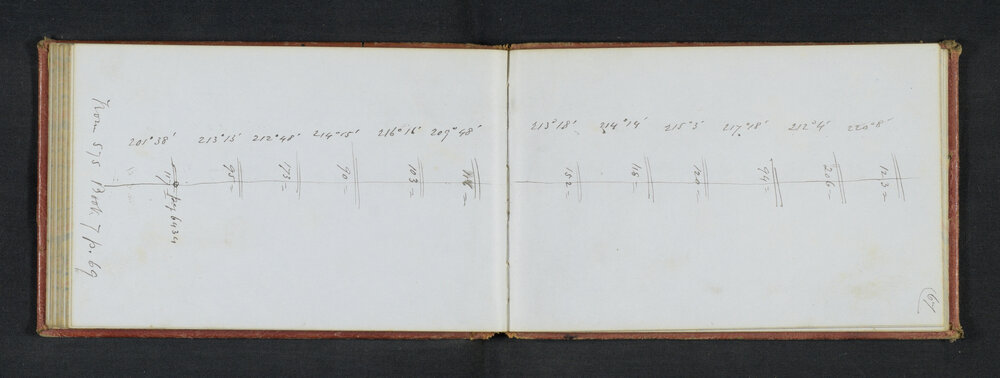 From 575 Book 7 p. 69
201°38'
213°15'
212°48'
214°15'
216°16'
209°48'
213°18'
214°14'
215°3'
217°18'
212°4'
220°8'
95=
173=
90=
103=
118=
152=
118=
120=
94=
206=
123=
67